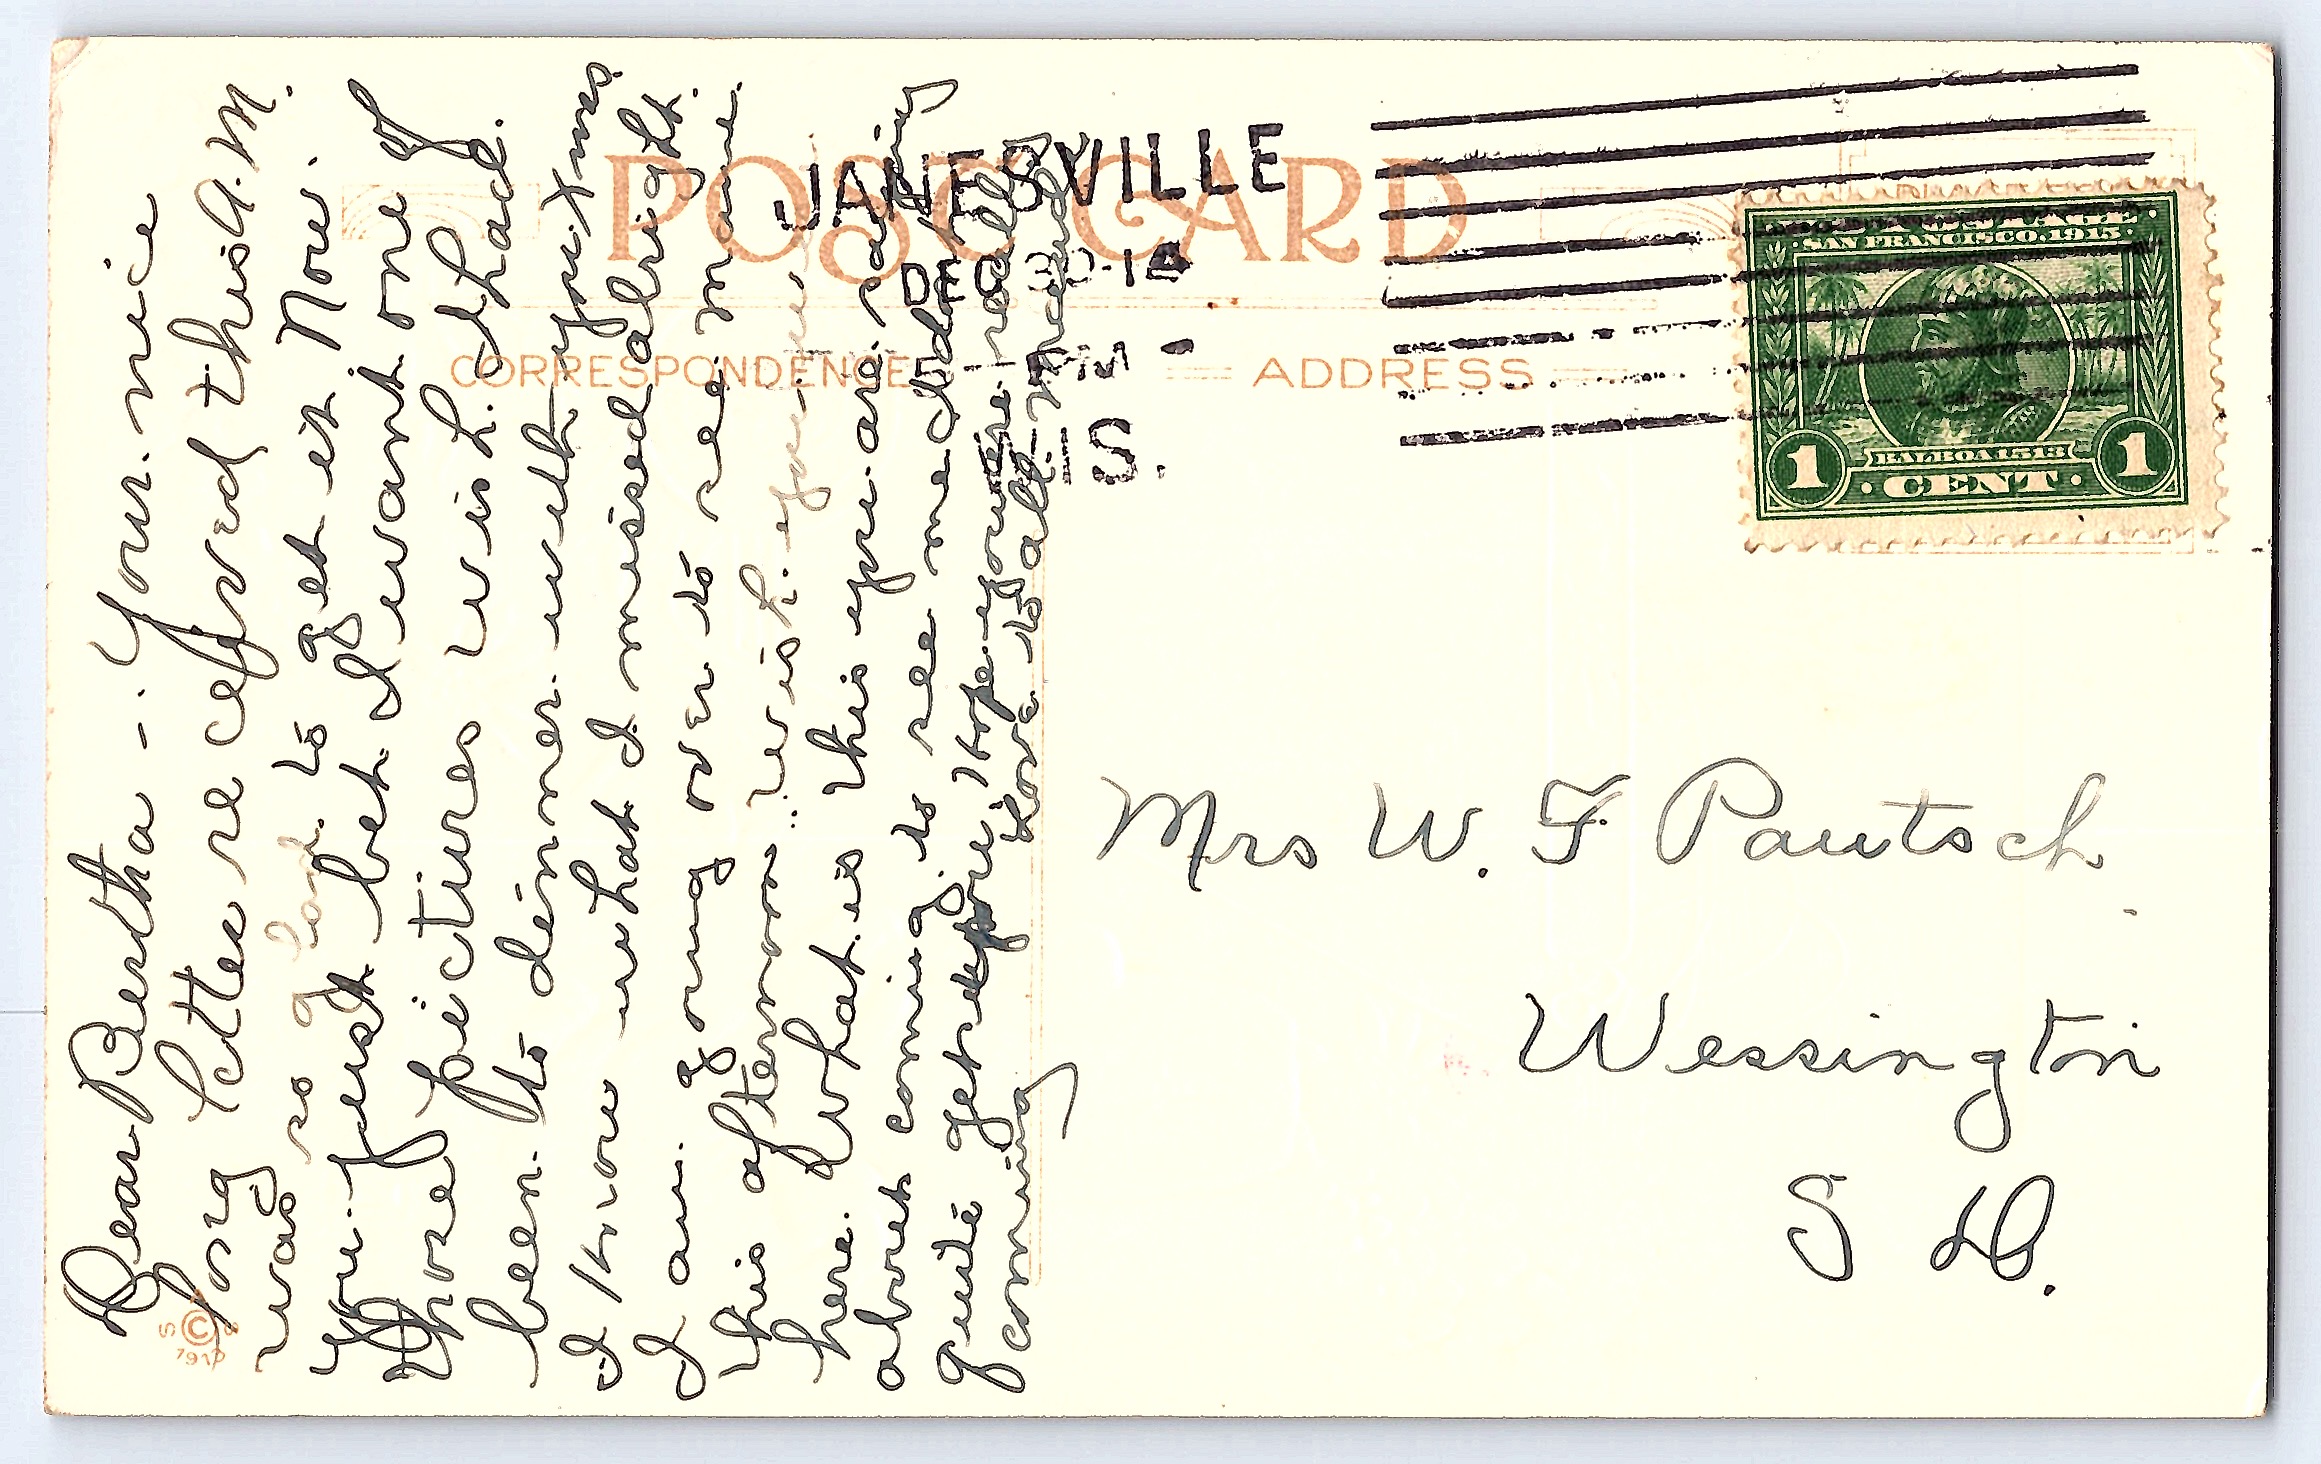 POST CARD
CORRESPONDENCE
ADDRESS
JANESVILLE
DEC 30 14
5 - PM
WIS.
SAN FRANCISCO, 1915
BALBOA 1513
1 CENT 1
Dear Bertha -. Your nice
long letter rec'vd this A.M.
was so glad. to get it. Now.
You just bet I want one of
those pictures wish. I had
been to dinner with you Xmas.
I know what I missed alright.
I am going over to see Mame.
this afternoon... wish you were
here. What is this you are saying
about coming to see me I don't
quite get Hope you are really
coming
Love to all
Mrs W. F Pautsch
Wessington
S D.
S © B